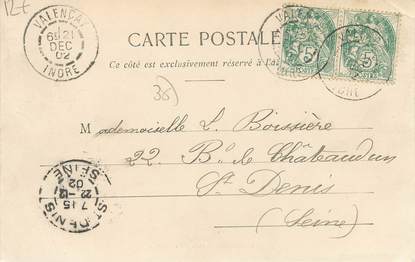 12E
VALENÇAY
21
DEC
02
INDRE
CARTE POSTALE
Ce côté est exclusivement réservé à l'a
5c
5c
36
Mademoiselle L. Boissière
22. Bd de Châteaudun
St Denis
(Seine)
ST DENIS
7 15
22 - 12
02
SEINE